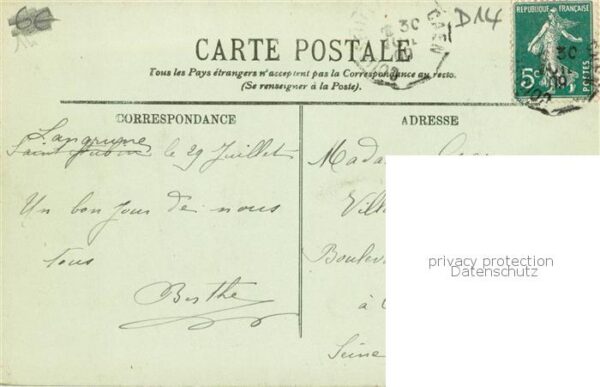 60
D14
CAEN
30
RÉPUBLIQUE FRANÇAISE
5c
POSTES
CARTE POSTALE
Tous les Pays étrangers n'acceptent pas la Correspondance au recto.
(Se renseigner à la Poste).
CORRESPONDANCE
Langrune
Saint Aubin le 29 Juillet
Un bon jour de nous
tous
Berthe
ADRESSE
Madame
Villa
Boulev
à
Seine
privacy protection
Datenschutz